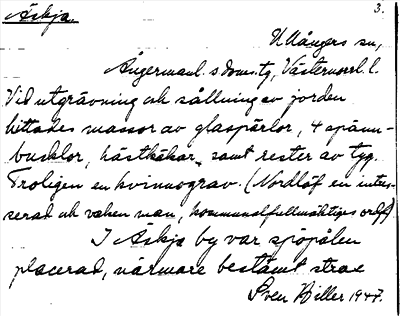 Äskja. 3.
Ullångers sn,
Ångermanl. s doms.tg, Västernorrl. l.
Vid utgrävning och sållning av jorden
hittades massor av glaspärlor, 4 spänn-
bucklor, hästkäkar, samt rester av tyg.
Troligen en kvinnograv. (Nordlöf en intres-
serad och vaken man, kommunalfullmäktiges ordf.)
I Äskja by var sjöpålen
placerad, närmare bestämt strax
Sven Hiller 1947.